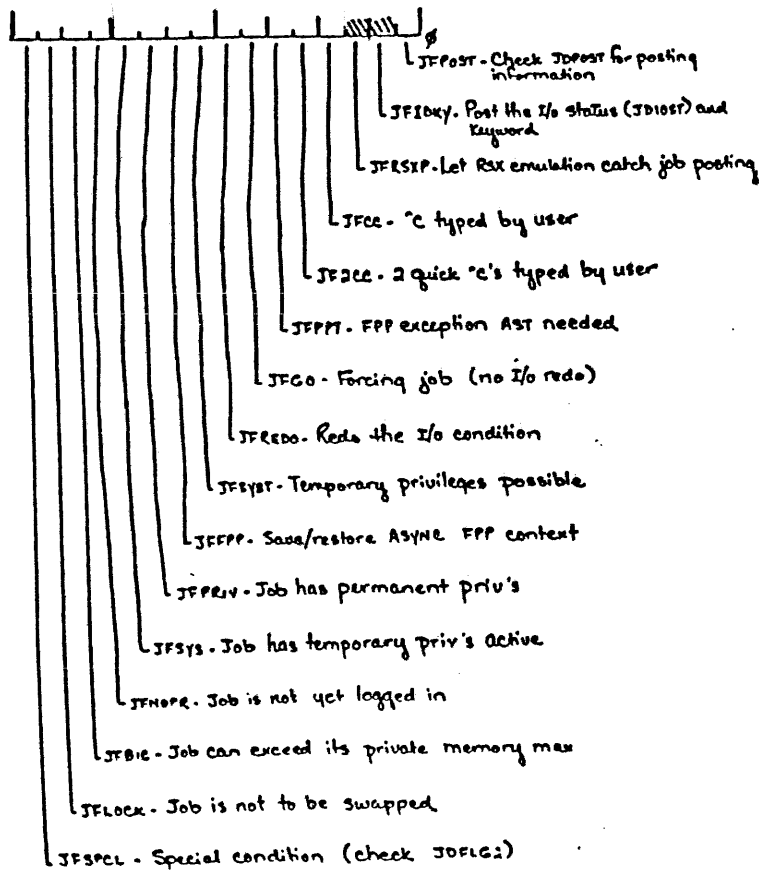 Ø
JFPOST - Check JDPOST for posting
information
JFIOKY - Post the I/O status (JDIOST) and
Keyword
JFRSXP - Let RSX emulation catch job posting
JFCC - ^C typed by user
JF2CC - 2 quick ^C's typed by user
JFPPT - FPP exception AST needed
JFGO - Forcing job (no I/O redo)
JFREDO - Redo the I/O condition
JFSYST - Temporary privileges possible
JFFPP - Save/restore ASYNC FPP context
JFPRIV - Job has permanent priv's
JFSYS - Job has temporary priv's active
JFNOPR - Job is not yet logged in
JFBIG - Job can exceed its private memory max
JFLOCK - Job is not to be swapped
JFSPCL - Special condition (check JDFLG2)